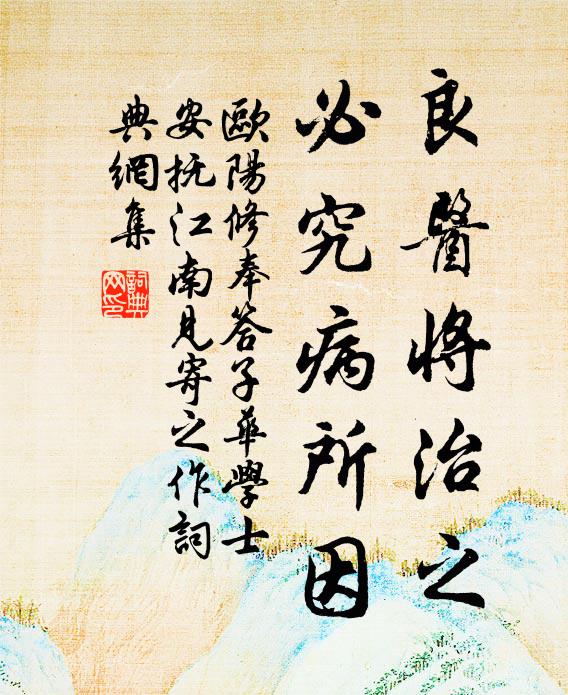 良醫將治之
必究病所因
歐陽修奉答子華學士
安抚江南見寄之作詞
典網集
詞典
网印